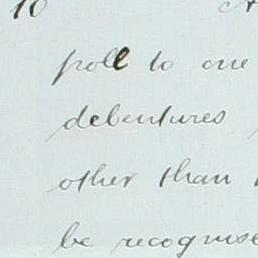 10
poll to one
debentures
other than
be recognise